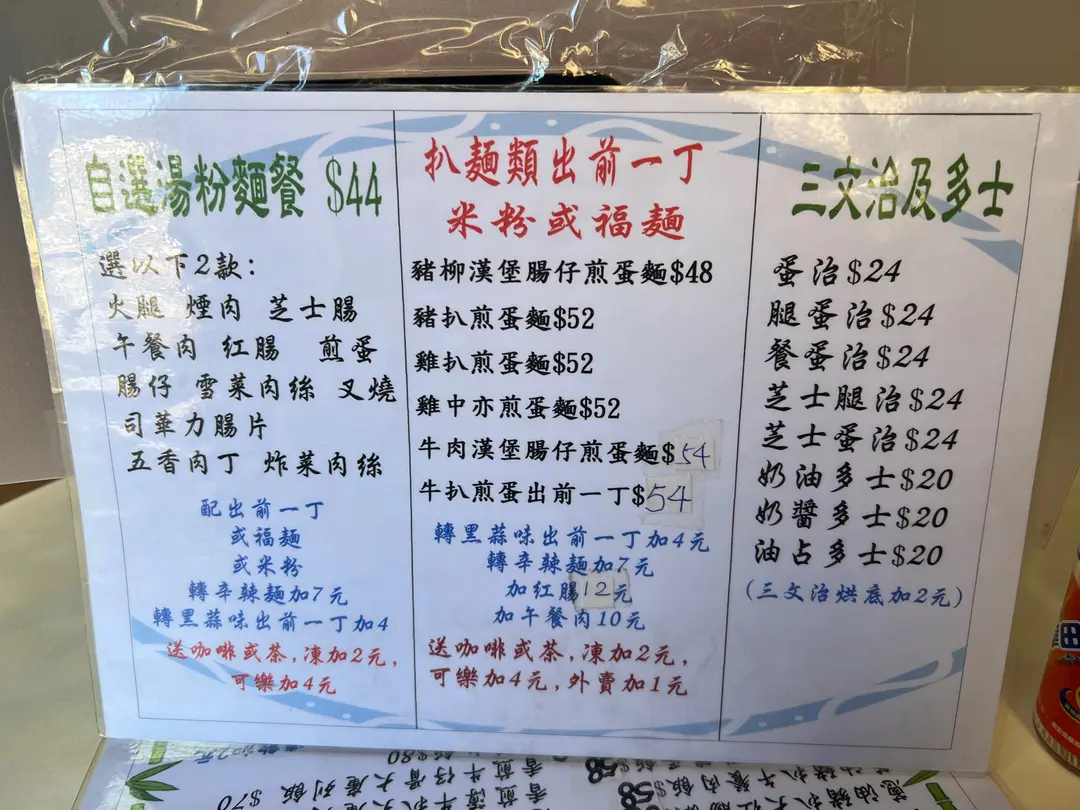 自選湯粉麵餐 $44
選以下2款:
火腿 煙肉 芝士腸
午餐肉 紅腸 煎蛋
腸仔 雪菜肉絲 叉燒
司華力腸片
五香肉丁 炸菜肉絲
配出前一丁
或福麵
或米粉
轉辛辣麵加7元
轉黑蒜味出前一丁加4
送咖啡或茶,凍加2元,
可樂加4元
扒麵類出前一丁
米粉或福麵
豬柳漢堡腸仔煎蛋麵$48
豬扒煎蛋麵$52
雞扒煎蛋麵$52
雞中亦煎蛋麵$52
牛肉漢堡腸仔煎蛋麵$54
牛扒煎蛋出前一丁$54
轉黑蒜味出前一丁加4元
轉辛辣麵加7元
加紅腸12元
加午餐肉10元
送咖啡或茶,凍加2元,
可樂加4元,外賣加1元
三文治及多士
蛋治$24
腿蛋治$24
餐蛋治$24
芝士腿治$24
芝士蛋治$24
奶油多士$20
奶醬多士$20
油占多士$20
(三文治烘底加2元)
$80
$70
$58
$58